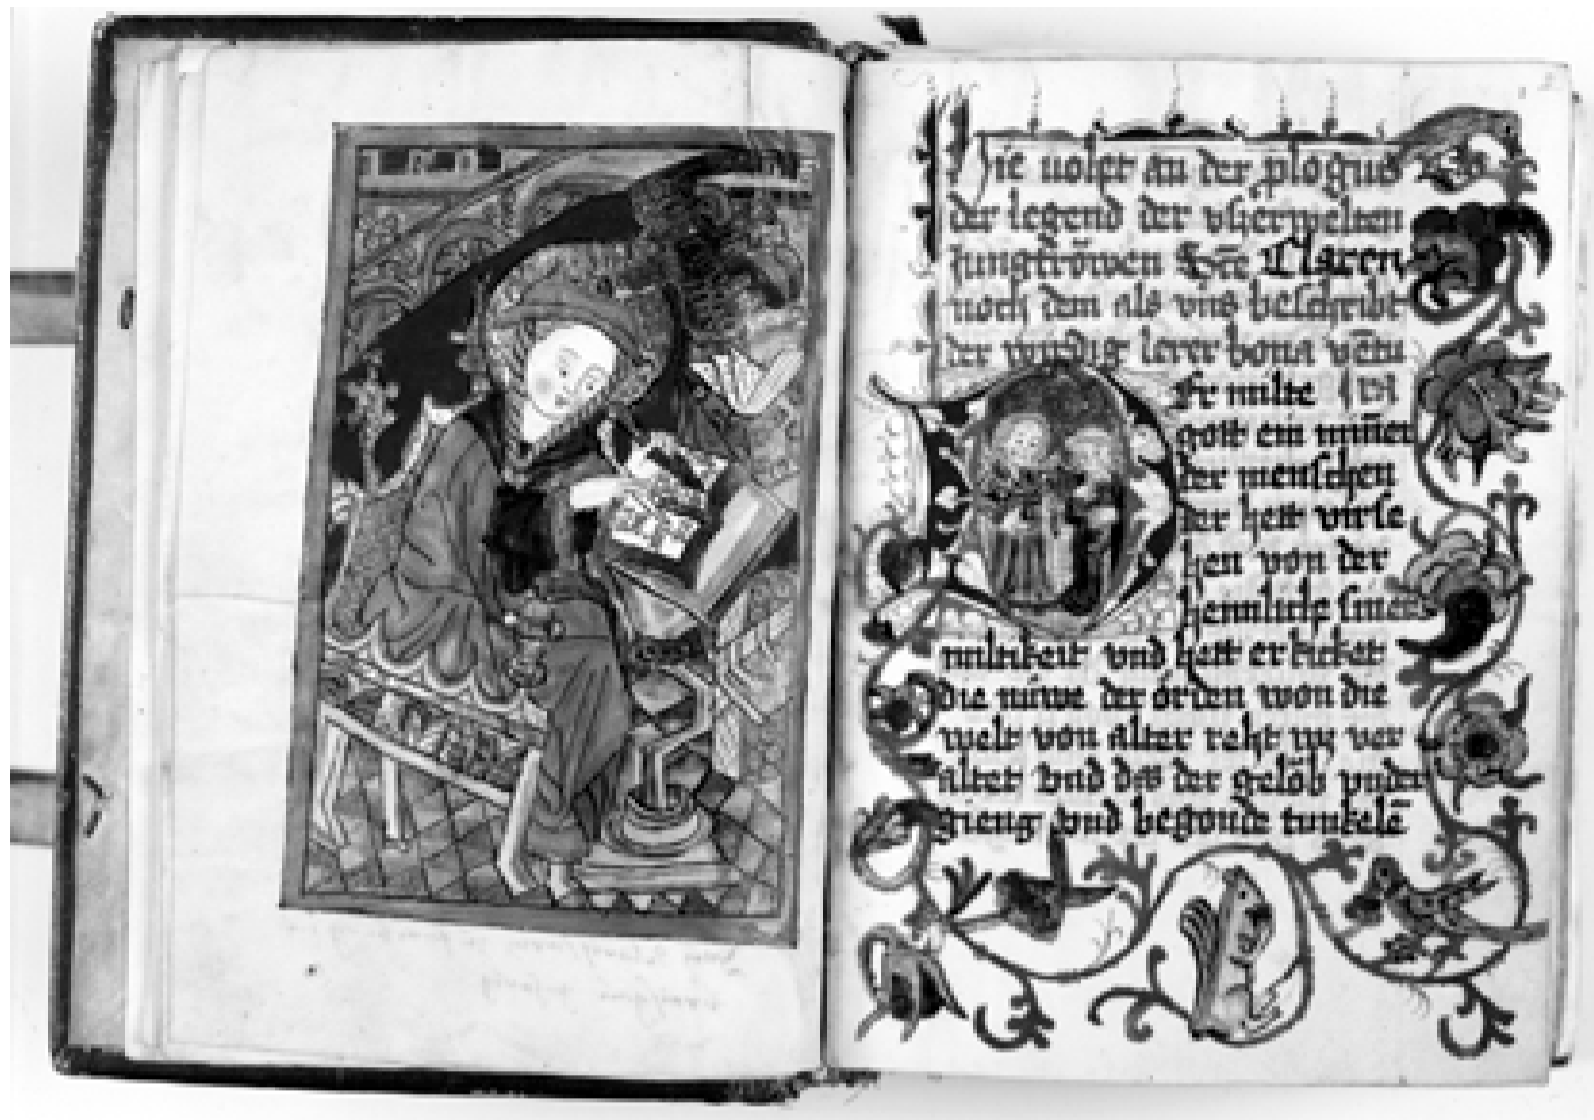 Hie uolget an der plogus
der legend der vsserwelten
Jungfrŏwen Claren
noch dem als vns beschribt
der wirdig lerer bona ventu
Er milte
gott ein minner
der menschen
der hett virse
hen von der
heimliche siner
miltikeit vnd hett erkicket
die núwe der órden won die
welt von alter reht
altet vnd dis der gelŏb vnder
gieng vnd begonde tunkelē